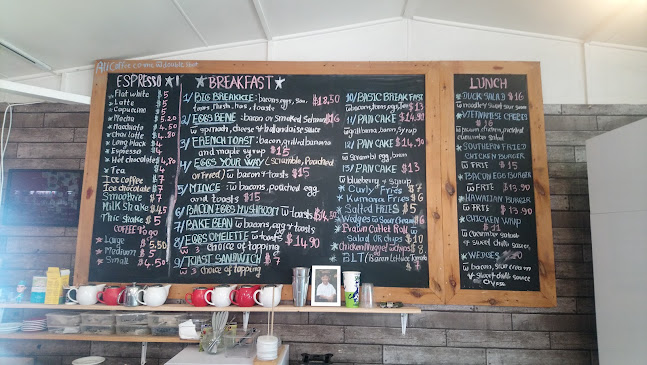 All coffee come w double shot
ESPRESSO
Flat white $5
Latte $5
Capucino $5
Mocha $5.20
Machiato $4.50
Chai latte $4.80
Long black $4
Espresso $4
Hot chocolate $4.80
Tea $4
ICE coffee $7
Ice chocolate $7
Smoothie $7
Milk Shake $4.5
Thic Shake $5
COFFEE To go
Large $5.50
Medium $5
Small $4.50
BREAKFAST
1/ BIG BREAKKIE: bacons, eggs, $18.50
toms, hash, toasts
2/ EGGS BENE: bacon or Smoked Salmon $16
w spinach, cheese & hollandaise sauce
3/ FRENCH TOAST: bacon, grilled banana
and maple syrup $15
4/ EGGS YOUR WAY (Scramble, Poached
or Fried) w bacon & toasts $15
5/ MINCE: w bacons, poached egg
and toasts $15
6/ BACON EGGS MUSHROOM w toasts $14.50
7/ BAKE BEAN w bacons, egg & toasts
8/ EGGS OMELETTE w toasts $14.90
w 3 choice of topping
9/ TOAST SANDWICH $5
w 2 choice of topping
10/ BASIC BREAKFAST
w bacons, toms, eggs, toasts $13
11/ PAN CAKE $14.90
w grill banana, bacon, syrup
12/ PAN CAKE $14.90
w scrambl egg, bacon
13/ PAN CAKE $13
w blueberry & syrup
Curly Fries $7
Kumara Fries $6
Salted FRIES $5
Wedges w Sour Cream $6
Prawn Cutlet Roll
Salad OR chips $10
Chicken Nugget w chips $8
BLT (Bacon Lettuce Tomato
$7
LUNCH
DUCK SALAD $16
VIETNAMESE CREPES
$16
SOUTHERN FRIED
CHICKEN BURGER
w FRIE $15
BACON EGG BURGER
w FRIE $13.90
HAWAIIAN BURGER
w FRIE $13.90
CHICKEN WRAP
$11
w cucumber salad
& sweet chilli sauce
WEDGES
w bacon, sour cream
& sweet chilli sauce